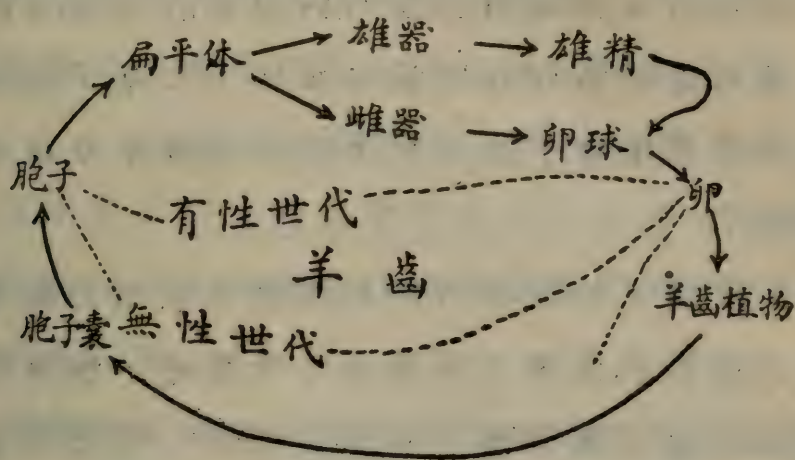 扁平体
雄器
雄精
雌器
卵球
胞子
有性世代
卵
羊齒
羊齒植物
胞子囊
無性世代